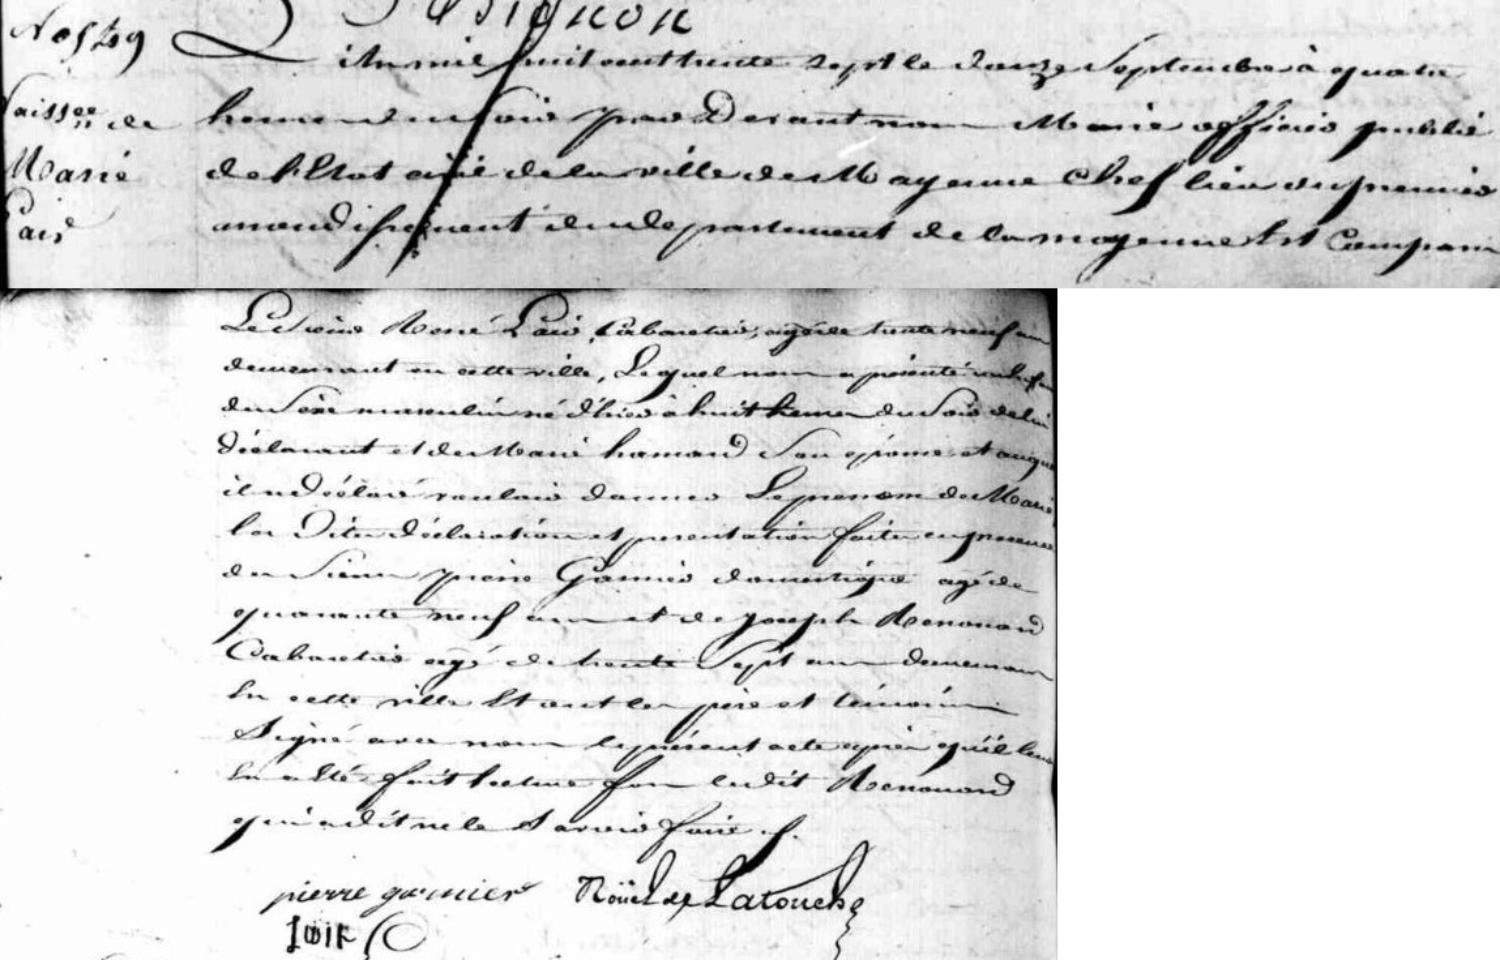 No 529
Naissce de
Marie
Loir
L'An mil huit cent trente sept le douze Septembre à quatre
heures du Soir par Devant nous Maire officier public
de l'Etat civil de la ville de Mayenne Chef lieu du premier
arrondissement du departement de la mayenne Est Comparu
Le Sieur René Loir, Cabaretier, agé de trente neuf ans
demeurant en cette ville, Lequel nous a présenté un Enfant
du Sexe masculin né d'hier à huit heures du Soir de lui
Déclarant et de Marie hamard Son épouse et auquel
il a déclaré vouloir donner Le prenom de Marie
les Dites déclaration et presentation faites en presence
du Sieur pierre Garnier domestique agé de
quarante neuf ans et de joseph Renouard
Cabaretier agé de trente Sept ans demeurant
En cette ville Et ont les père et témoins
Signé avec nous le présent acte après qu'il leur
En a Eté fait lecture fors ledit Renouard
qui a dit ne le Savoir faire
pierre garnier Noüel de Latouche
Loir